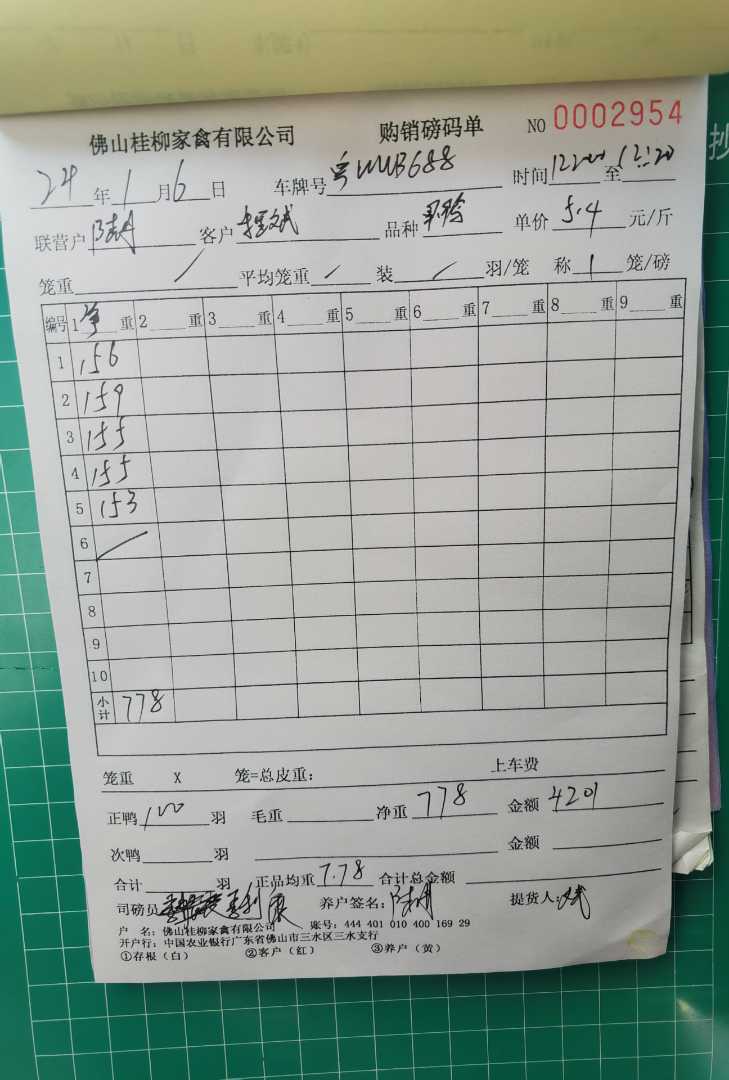 佛山桂柳家禽有限公司 购销磅码单 NO 0002954
24年1月6日 车牌号 粤WWB688 时间12:00至12:20
联营户 客户 品种 单价 5.4 元/斤
笼重 / 平均笼重 / 装 / 羽/笼 称 1 笼/磅
编号 1 净 重 2 重 3 重 4 重 5 重 6 重 7 重 8 重 9 重
1 156
2 159
3 155
4 155
5 153
6 /
7
8
9
10
小计 778
笼重 X 笼=总皮重: 上车费
正鸭 100 羽 毛重 净重 778 金额 4201
次鸭 羽 金额
合计 羽 正品均重 7.78 合计总金额
司磅员 养户签名: 提货人:
户 名: 佛山桂柳家禽有限公司 账号: 444 401 010 400 169 29
开户行: 中国农业银行广东省佛山市三水区三水支行
①存根(白) ②客户(红) ③养户(黄)
抄